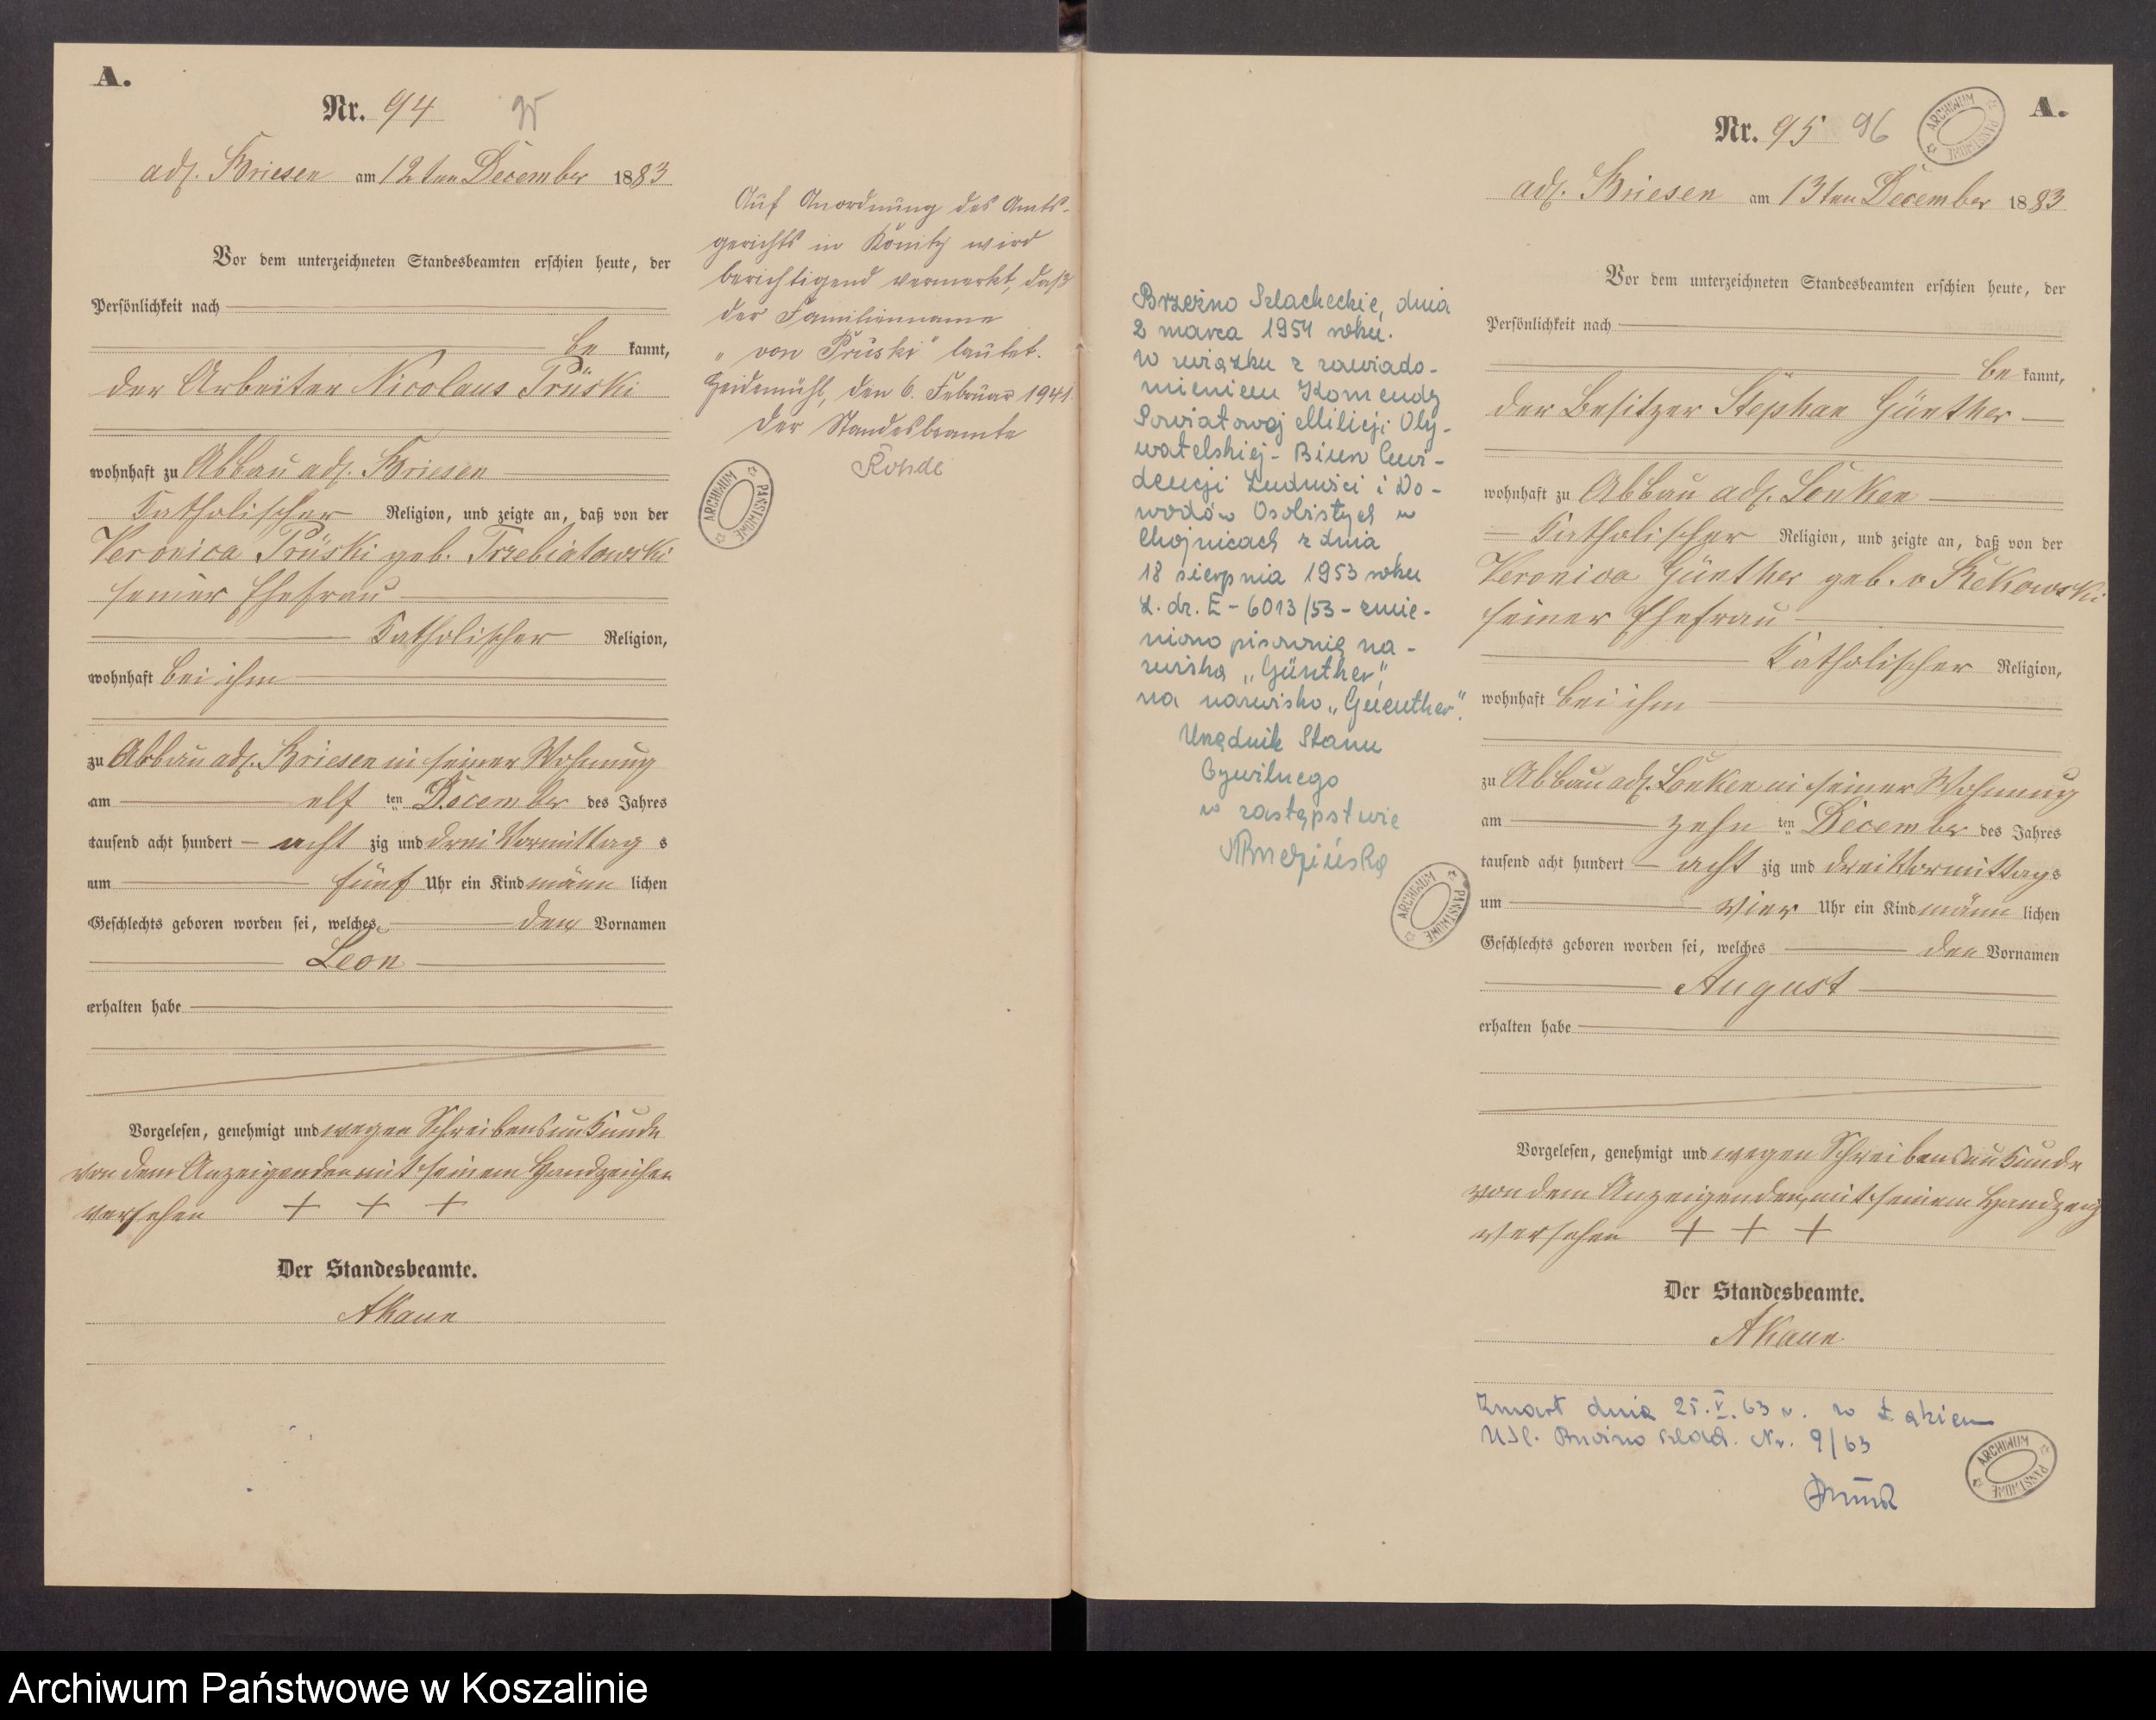 A.
Nr. 94 95
adl. Briesen am 12ten December 1883
Vor dem unterzeichneten Standesbeamten erschien heute, der
Persönlichkeit nach
be kannt,
der Arbeiter Nicolaus Prüski
wohnhaft zu Abbau adl. Briesen
Katholischer Religion, und zeigte an, daß von der
Veronica Prüski geb. Trzebiatowski
seiner Ehefrau
Katholischer Religion,
wohnhaft bei ihm
zu Abbau adl. Briesen in seiner Wohnung
am elf ten December des Jahres
tausend acht hundert acht zig und drei Vormittag s
um fünf Uhr ein Kind männ lichen
Geschlechts geboren worden sei, welches den Vornamen
Leon
erhalten habe
Vorgelesen, genehmigt und wegen Schreibensunkunde
von dem Anzeigenden mit seinem Handzeichen
versehen + + +
Der Standesbeamte.
AKaun
Auf Anordnung des Amts-
gerichts in Konitz wird
berichtigend vermerkt, daß
der Familienname
„von Prüski" lautet.
Heidemühl, den 6. Februar 1941.
Der Standesbeamte
Rohde
ARCHIWUM PAŃSTWOWE
Brzeźno Szlacheckie, dnia
2 marca 1954 roku.
W związku z zawiado-
mieniem Komendy
Powiatowej Milicji Oby-
watelskiej - Biura Ewi-
dencji Ludności i Do-
wodów Osobistych w
Chojnicach z dnia
18 sierpnia 1953 roku
L. dz. E-6013/53 - zmie-
niono pisownię na-
zwiska „Günther",
na nazwisko „Guenther".
Urzędnik Stanu
Cywilnego
w zastępstwie
ARCHIWUM PAŃSTWOWE
A.
Nr. 95 96
ARCHIWUM PAŃSTWOWE
adl. Briesen am 13ten December 1883
Vor dem unterzeichneten Standesbeamten erschien heute, der
Persönlichkeit nach
be kannt,
der Besitzer Stephan Günther
wohnhaft zu Abbau adl. Lonken
Katholischer Religion, und zeigte an, daß von der
Veronica Günther geb. v Kekowski
seiner Ehefrau
Katholischer Religion,
wohnhaft bei ihm
zu Abbau adl. Lonken in seiner Wohnung
am zehn ten December des Jahres
tausend acht hundert acht zig und drei Vormittags
um vier Uhr ein Kind männ lichen
Geschlechts geboren worden sei, welches den Vornamen
August
erhalten habe
Vorgelesen, genehmigt und wegen Schreibensunkunde
von dem Anzeigenden mit seinem Handzeig
versehen + + +
Der Standesbeamte.
AKaun
Zmarł dnia 25.V.63 r. w Łąkiem
USC. Brzeźno Szlach. Nr. 9/63
ARCHIWUM PAŃSTWOWE
Archiwum Państwowe w Koszalinie